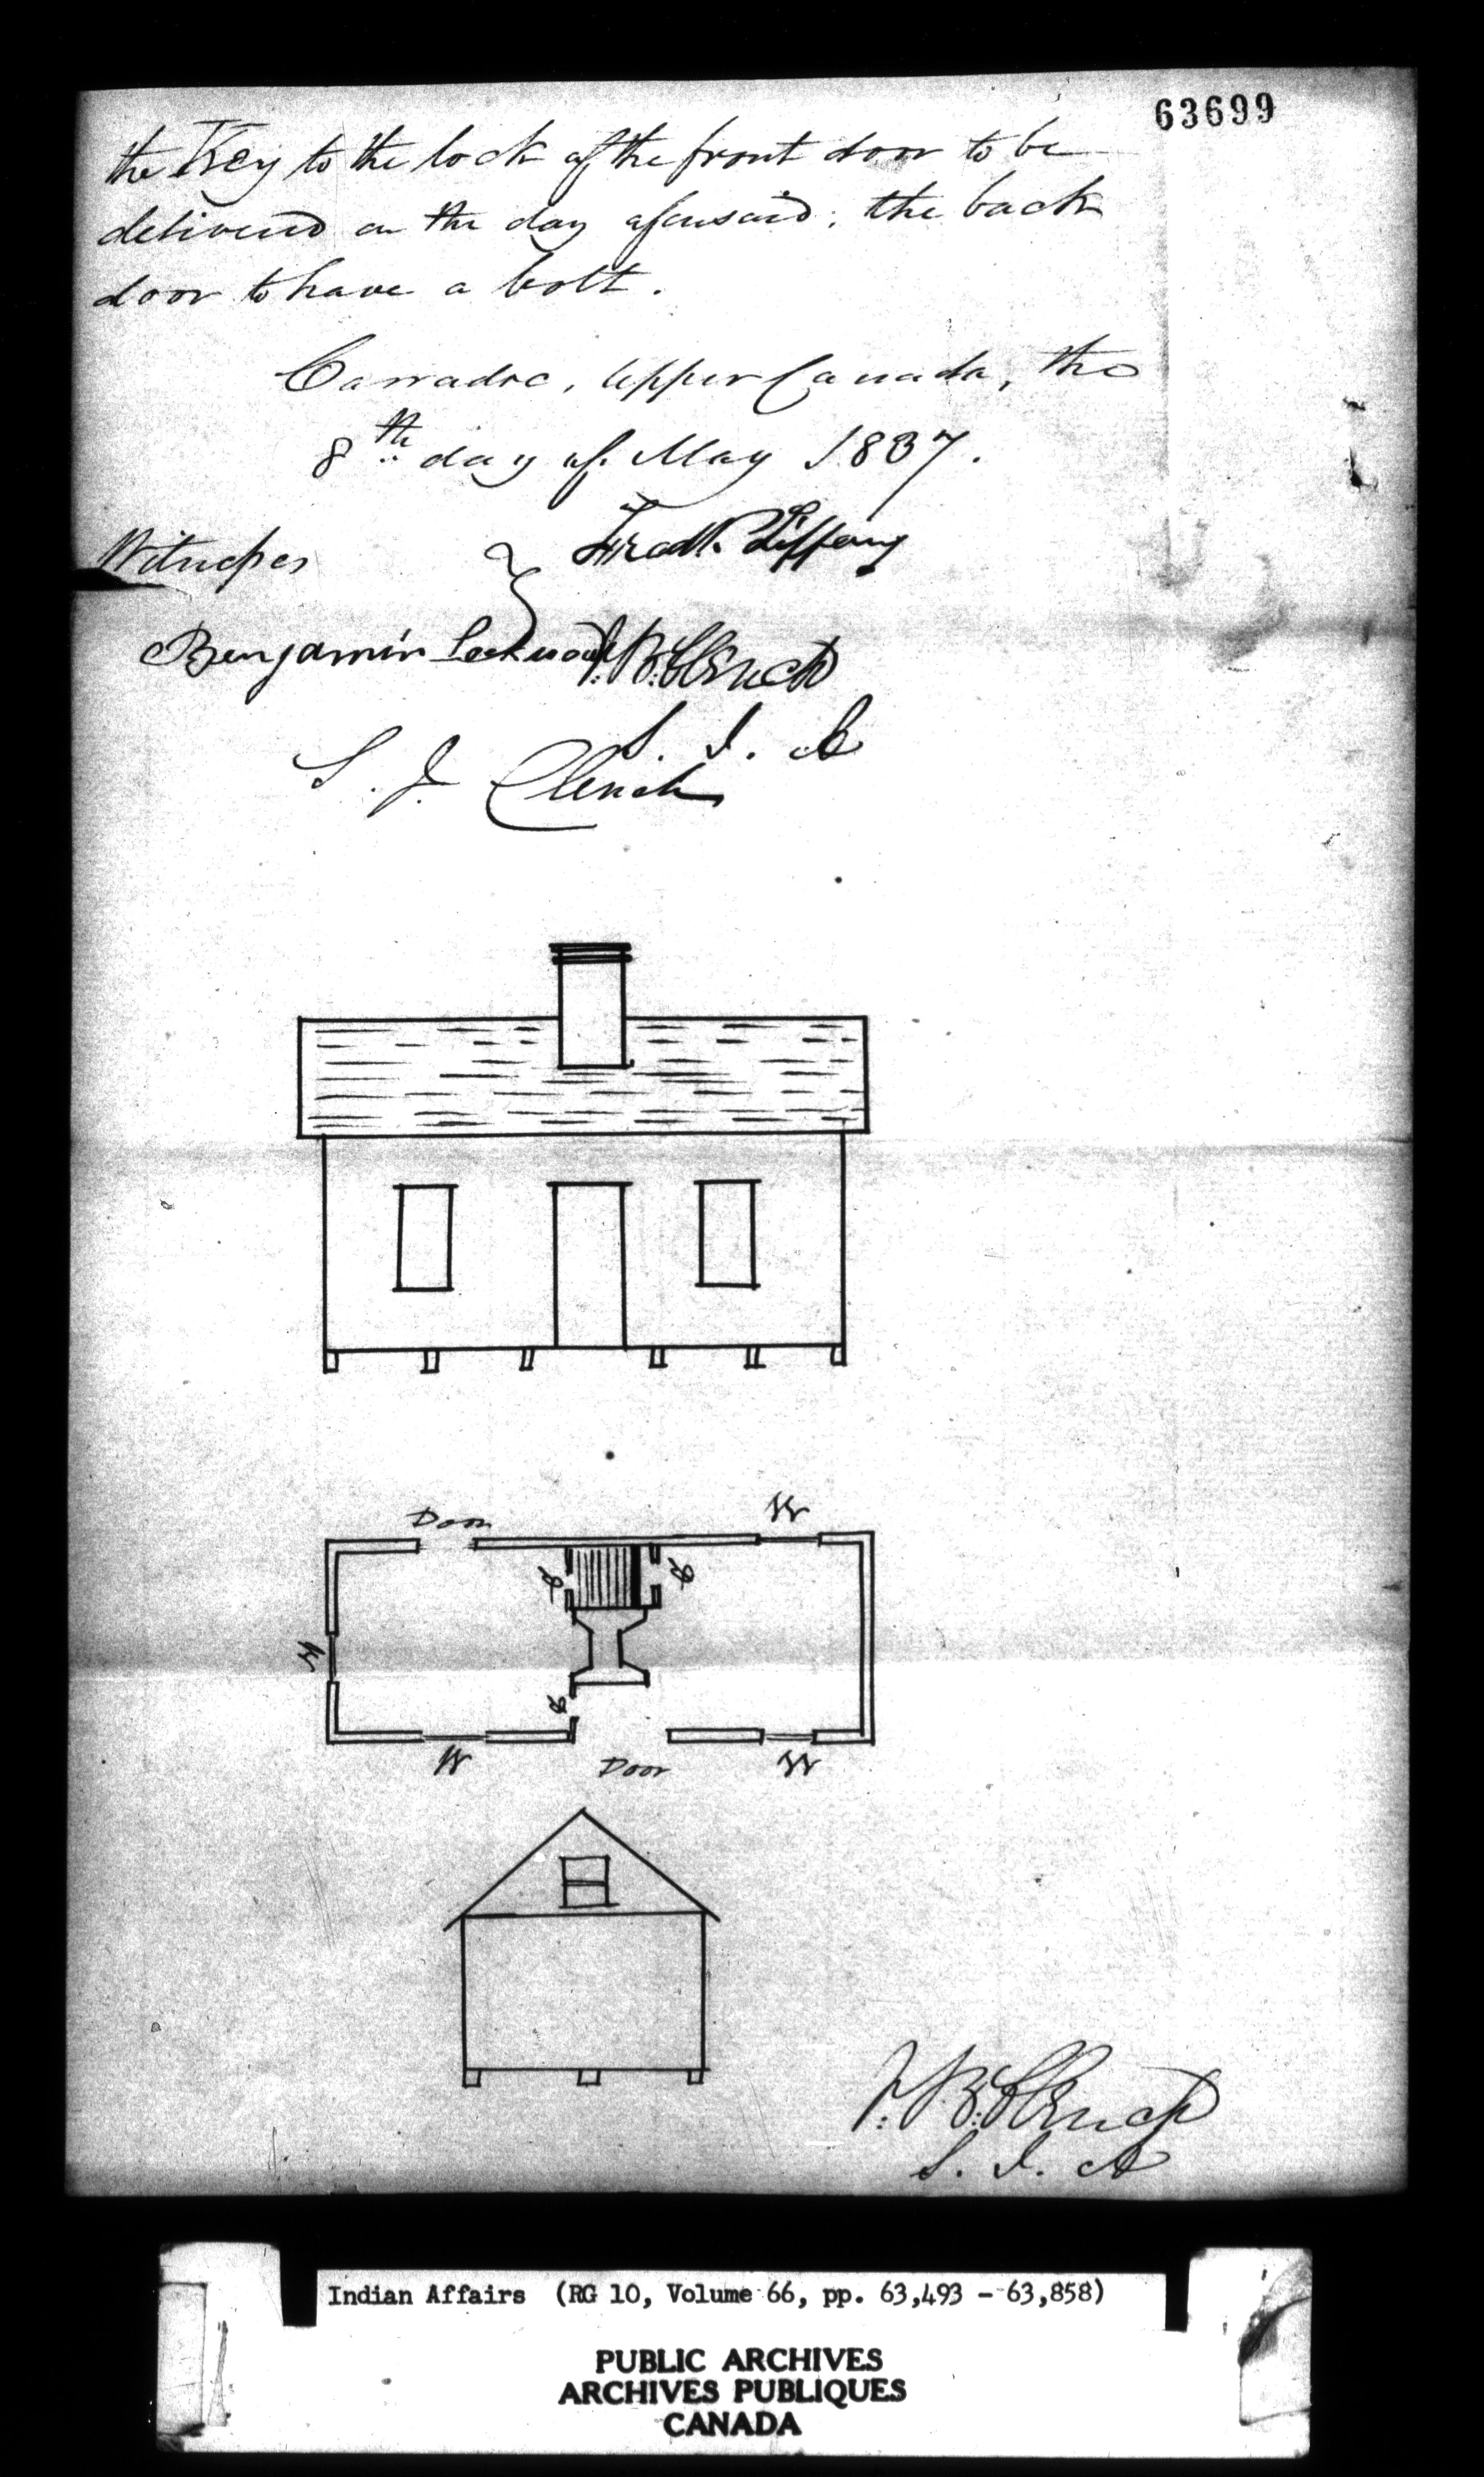 63699
the Key to the lock of the front door to be
delivered on the day aforesaid; the back
door to have a bolt.
Carradoc, Upper Canada, the
8th day of May 1837.
Witnesses
Fredk. Tiffany
Benjamin Lockwood
J. B. Clench
S. I. A
S. J. Clench
Door
W
W
W
Door
W
J. B. Clench
S. I. A
Indian Affairs (RG 10, Volume 66, pp. 63,493 - 63,858)
PUBLIC ARCHIVES
ARCHIVES PUBLIQUES
CANADA